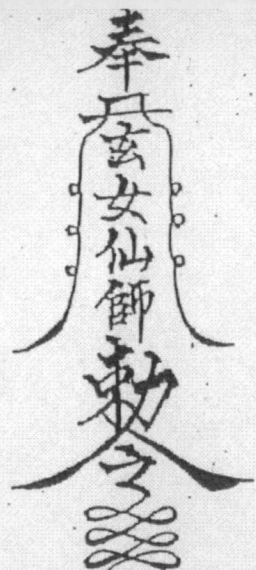 奉玄女仙師勅令